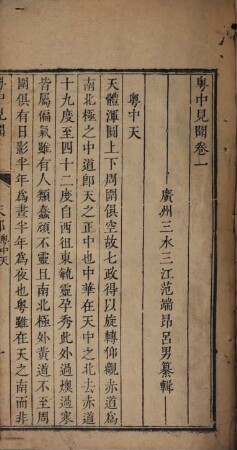 粵中見聞卷一
廣州三水三江范端昂呂男纂輯
粵中天
天體渾圓上下周圍俱空故七政得以旋轉仰觀赤道爲
南北極之中道即天之正中也中華在天中之北去赤道
十九度至四十二度自西徂東毓靈孕秀此外過燠過寒
皆屬偏氣雖有人類蠢頑不靈且南北極外黃道不至周
圍俱有日影半年爲晝半年爲夜也粵雖在天之南而非
粵中見聞
天部
粵中天
一